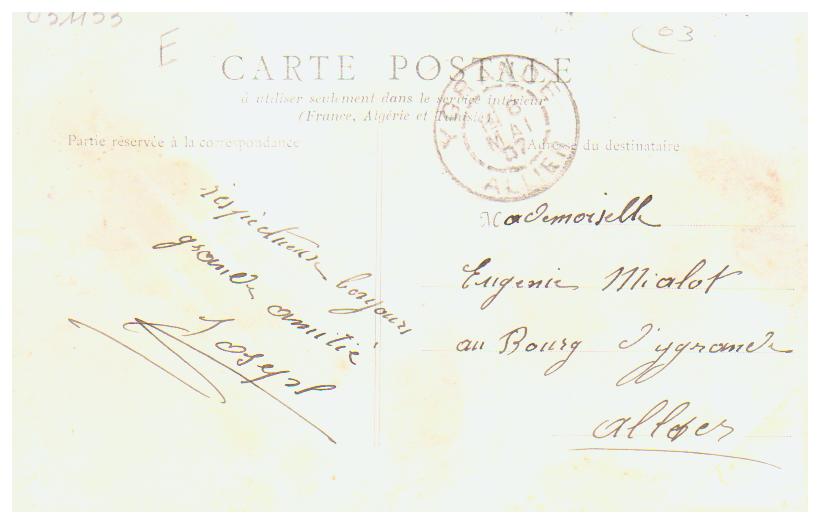 031153
E
03
CARTE POSTALE
à utiliser seulement dans le service intérieur
(France, Algérie et Tunisie)
Partie réservée à la correspondance
Adresse du destinataire
YGRANDE
MAI
07
ALLIER
respectueux bonjours
grande amitié
Joseph
Mademoiselle
Eugenie Mialot
au Bourg d'ygrande
allier